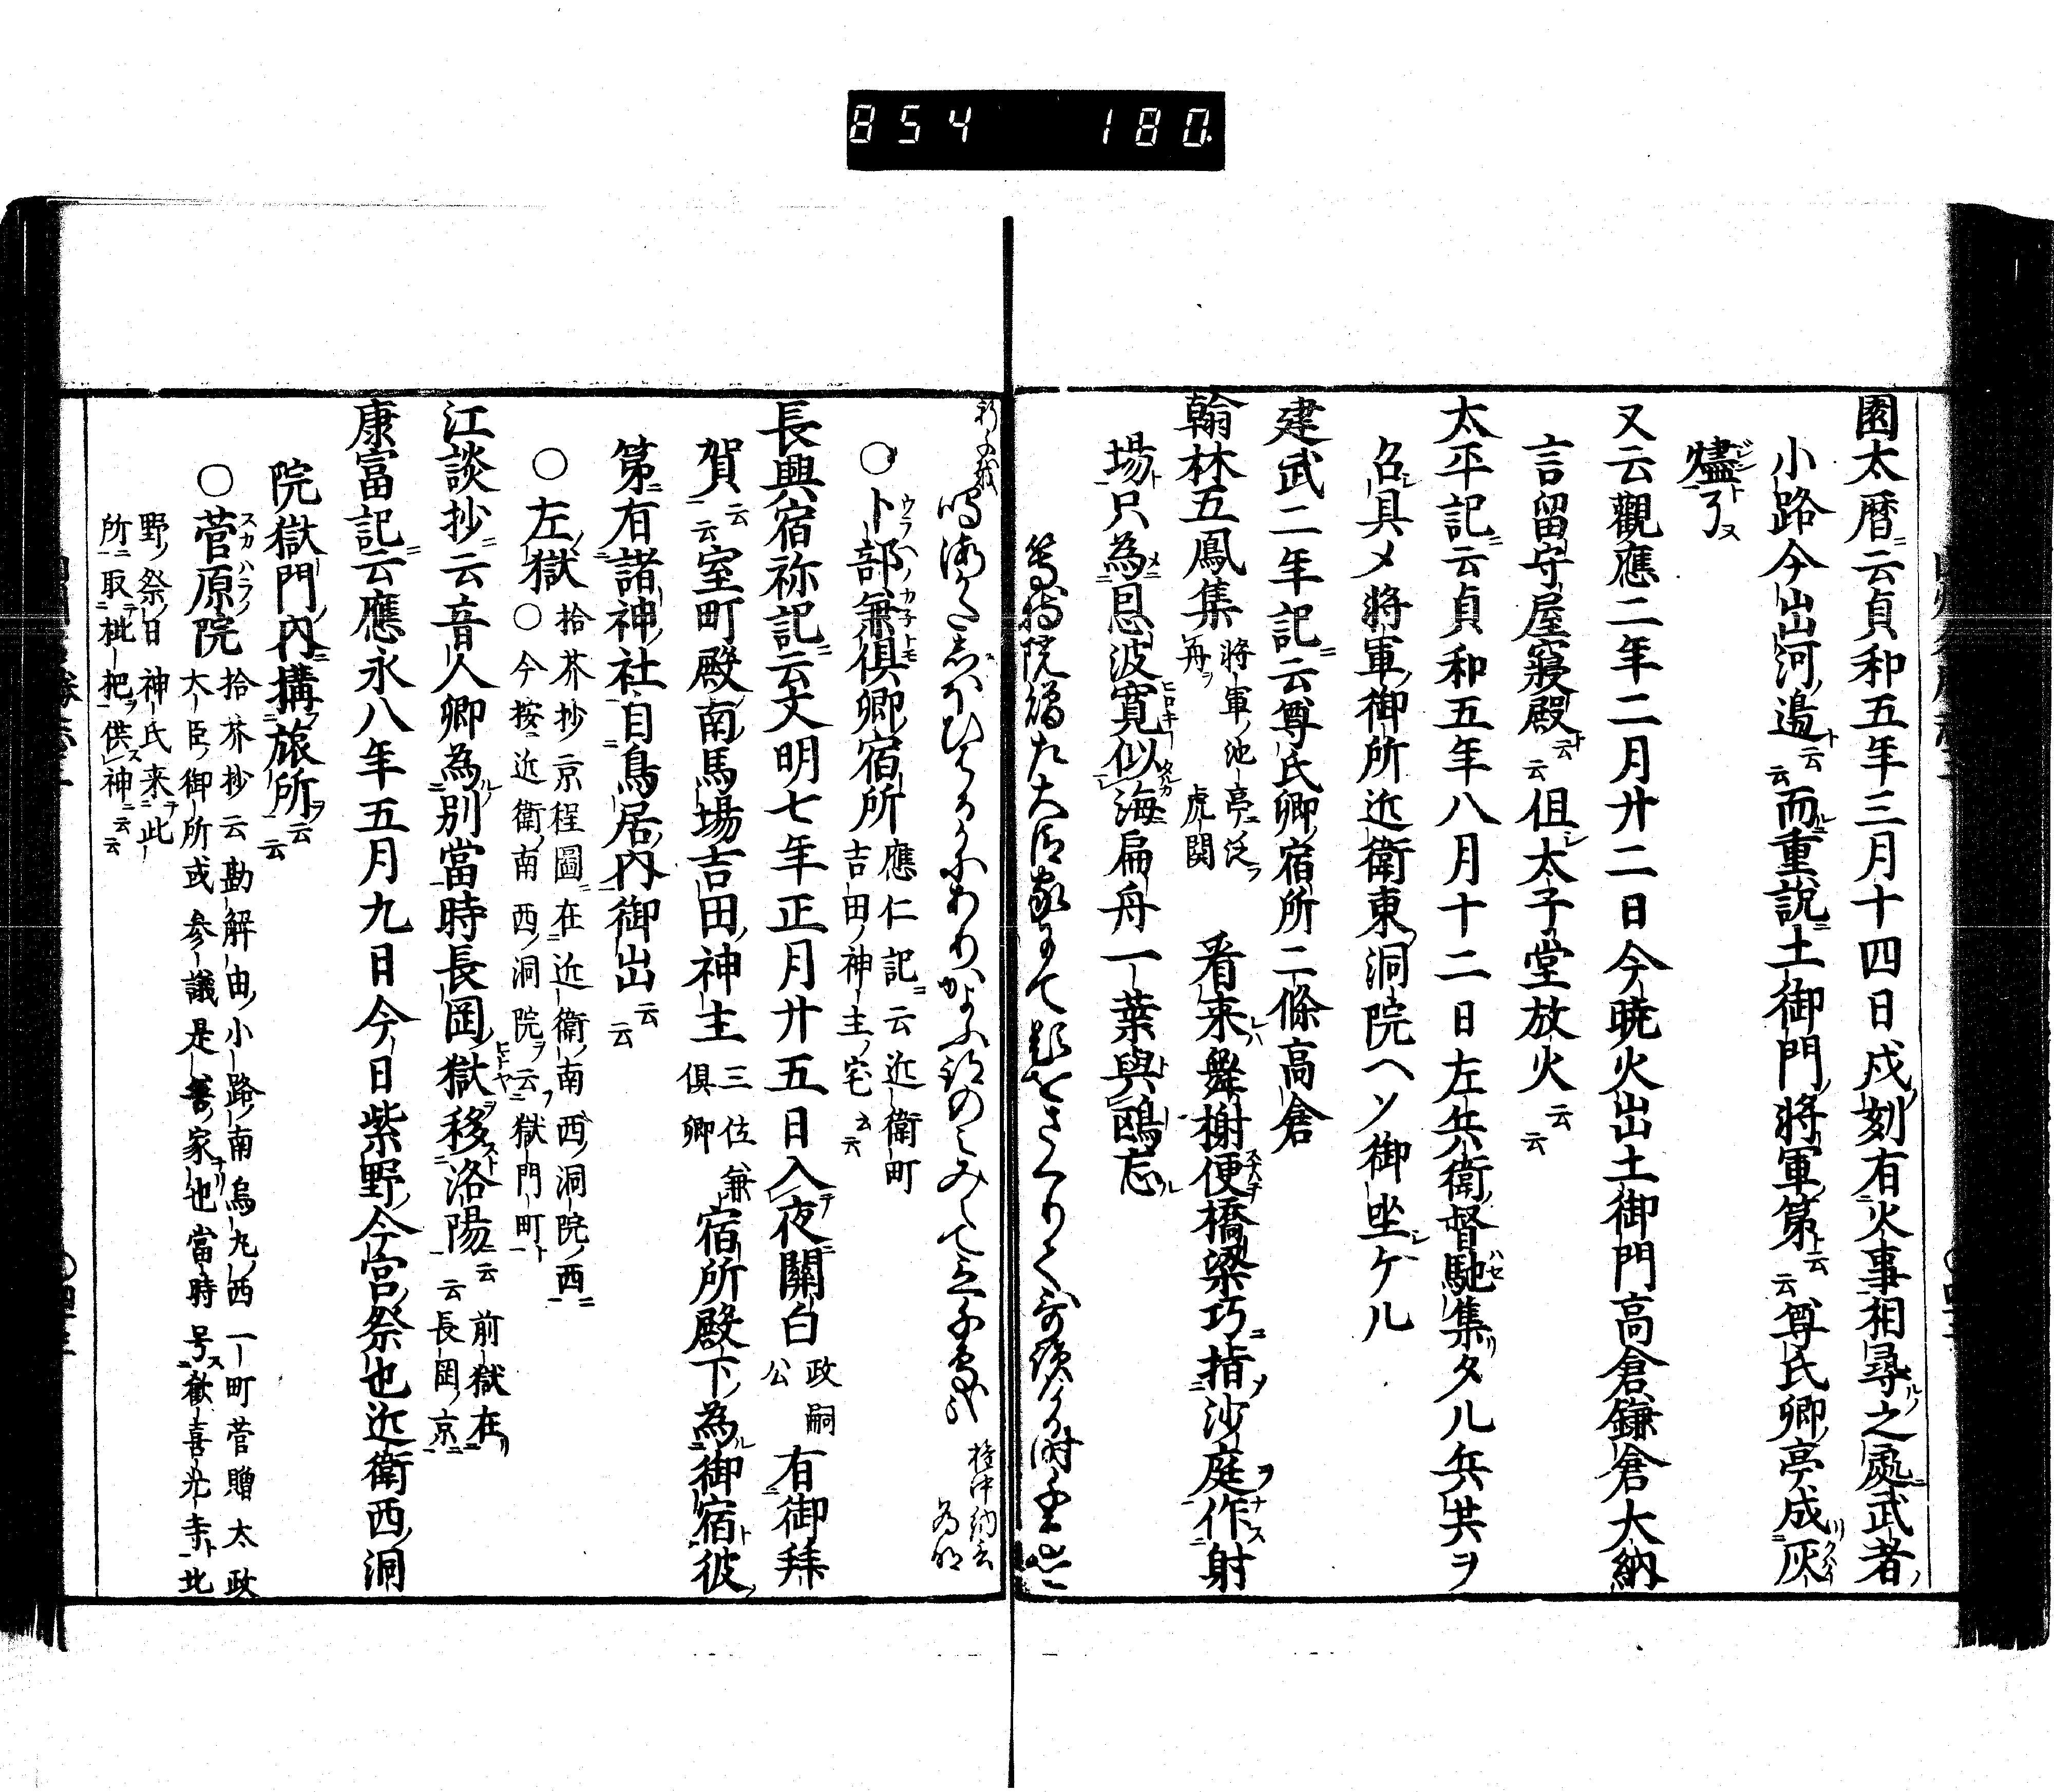 854 180.
園太暦云貞和五年三月十四日戌刻有火事相尋之處武者
小路今出河邉云云而重説土御門将軍第云云尊氏卿亭成灰
燼了
又云觀應二年二月廿二日今暁火出土御門高倉鎌倉大納
言留守屋寝殿云云但太子堂放火云云
太平記云貞和五年八月十二日左兵衛督馳集タル兵共ヲ
召具メ将軍御所近衛東洞院ヘソ御坐ケル
建武二年記云尊氏卿宿所二條高倉
翰林五鳳集 将軍ノ池亭ニ泛フ舟ヲ 虎関 看来舞榭便橋梁巧指沙庭作射
場只為恩波寛似海扁舟一葉與鷗忘
等持院贈左大臣家にて題をさくりて哥讀る時
長興宿祢記云文明七年正月廿五日入夜關白 政嗣公 有御拜
〇卜部兼倶卿宿所 應仁記云近衛町吉田ノ神主ノ宅云云
賀云云室町殿南馬場吉田神主 三位兼倶卿 宿所殿下為御宿彼
第有諸神社自鳥居内御出云云
〇左獄 拾芥抄京程圖在近衛南西洞院西
〇今按近衛南西洞院ヲ云獄門町ト
江談抄云音人卿為別當時長岡獄移洛陽云云 前獄在長岡京
康富記云應永八年五月九日今日紫野今宮祭也近衛西洞
院獄門内搆旅所云云
〇菅原院 拾芥抄云勘解由小路南烏丸西一町菅贈太政
太臣御所或参議是善家也當時号歓喜光寺北
野祭日神氏来此
所取枇把供神云云